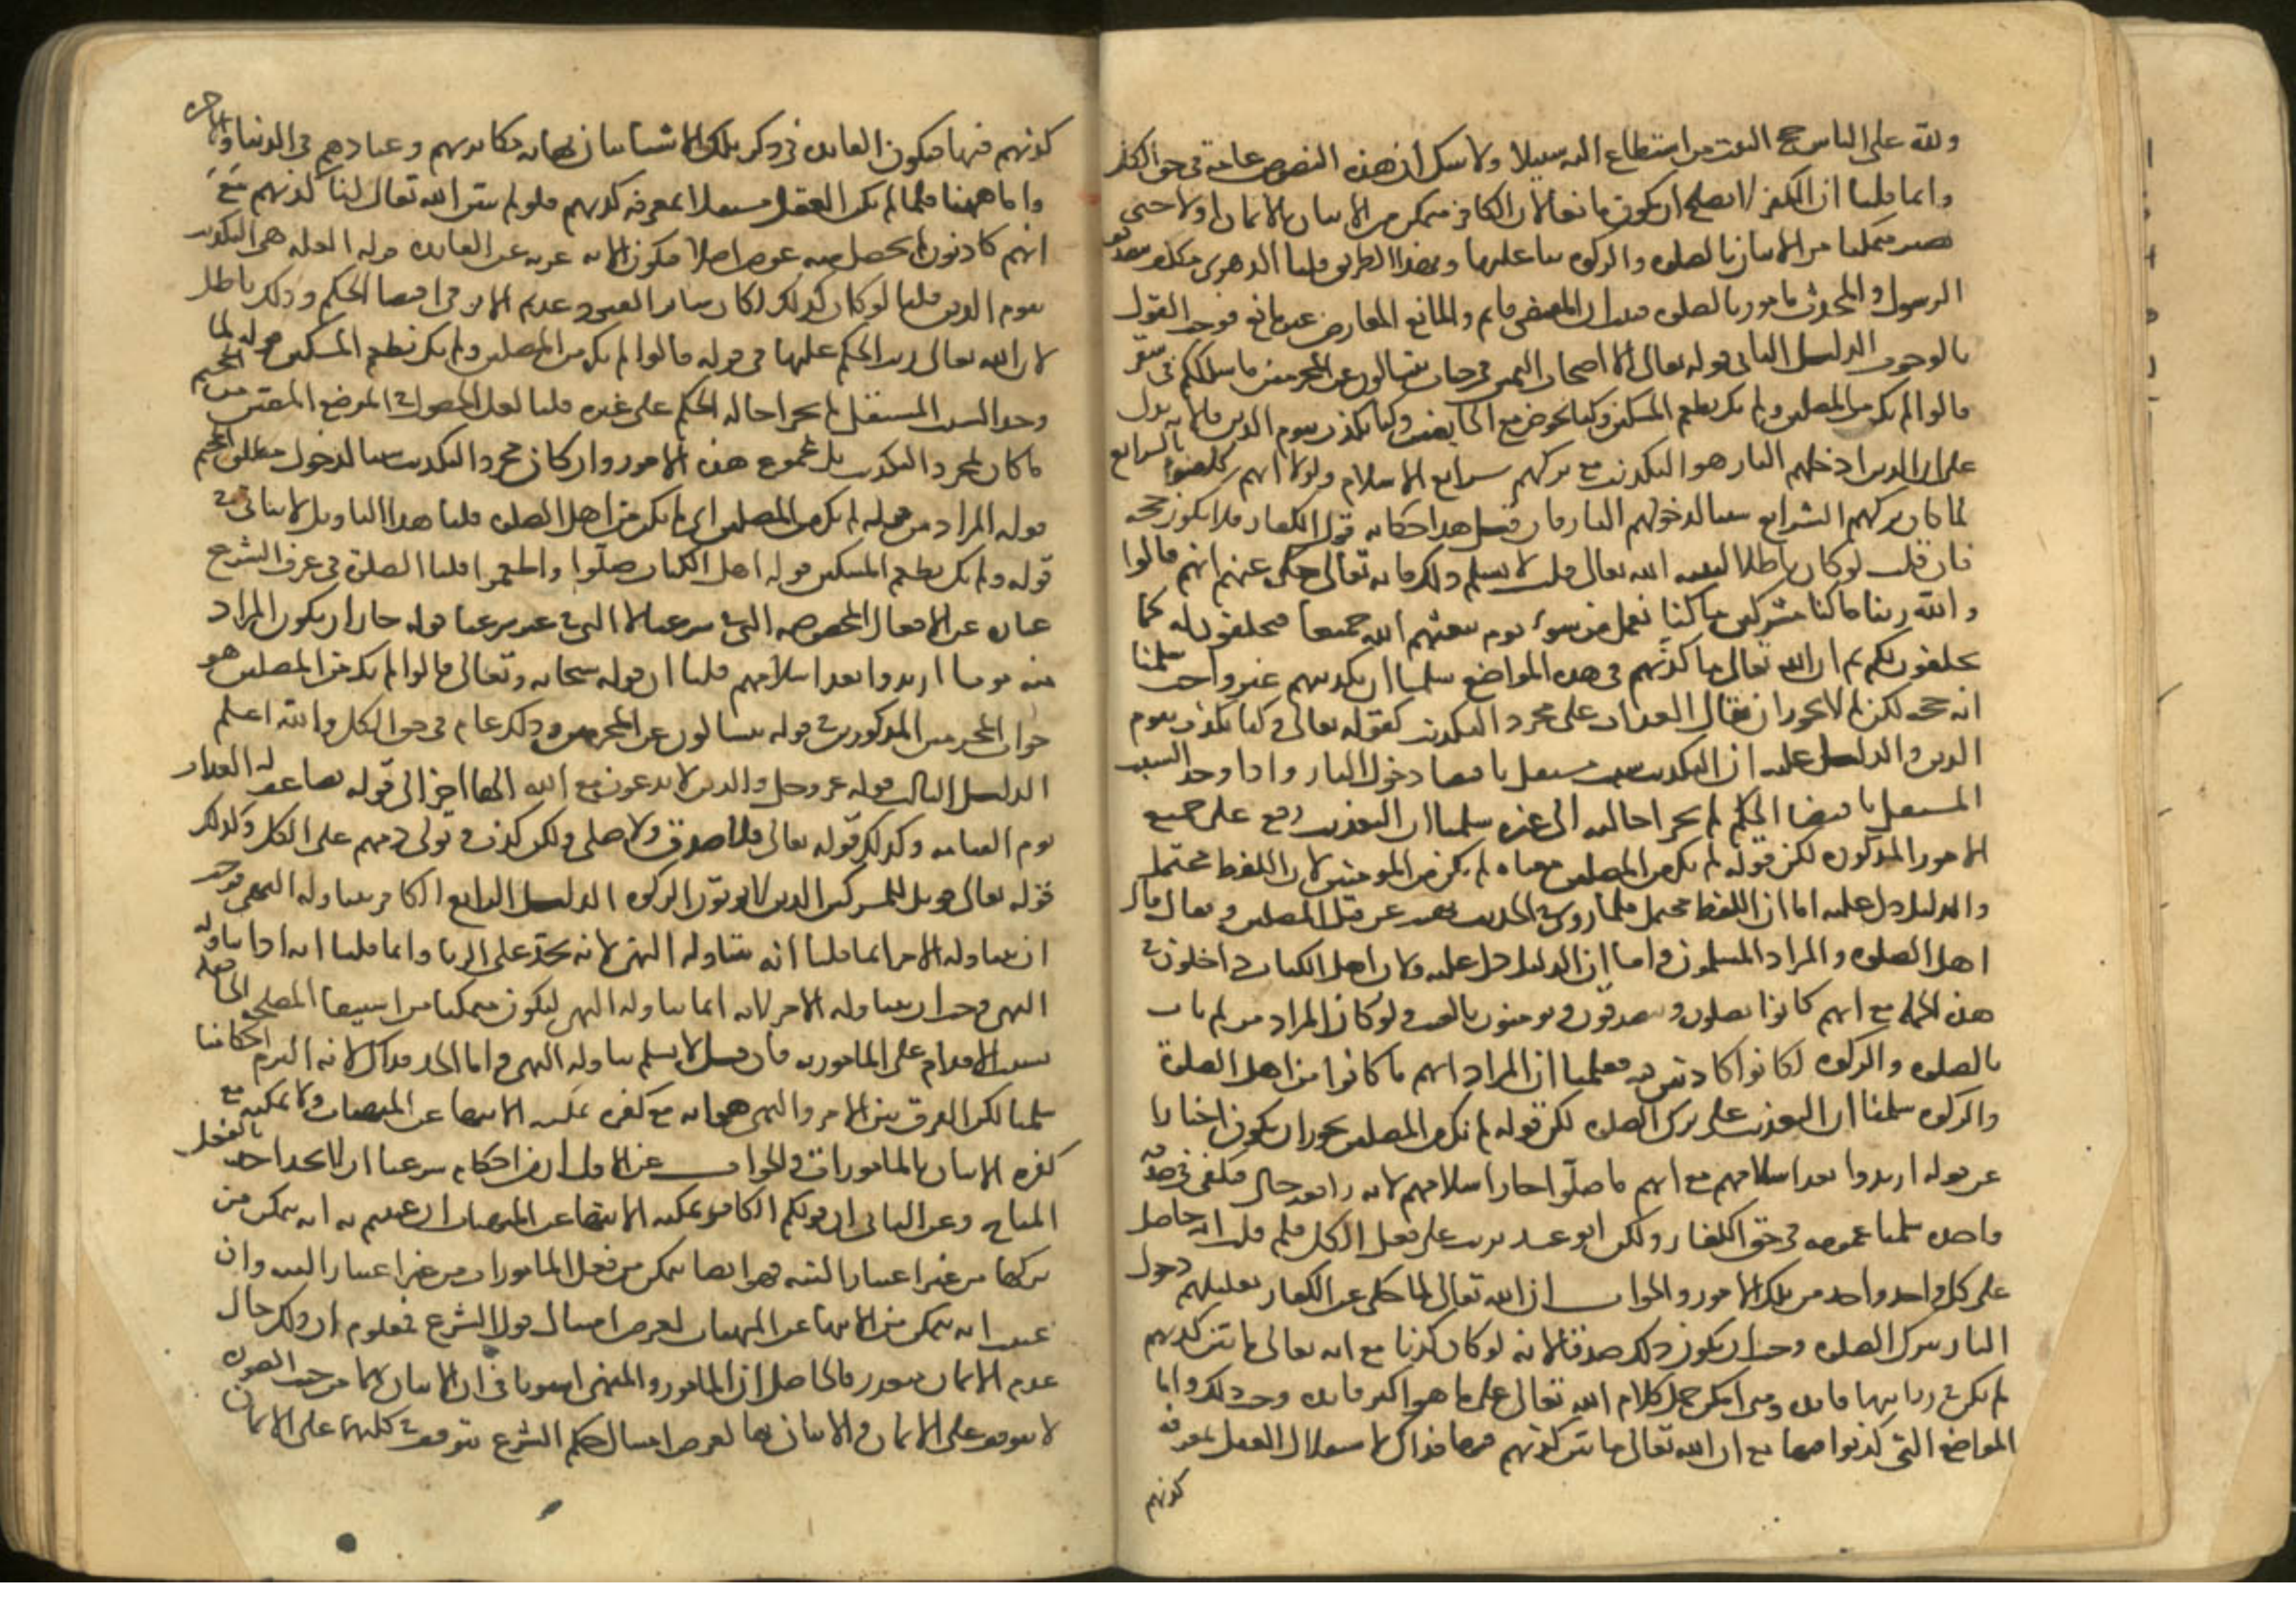 ولله على الناس حج البيت من استطاع اليه سبيلا ولا شك ان هذه النصوص عامة في حق الكل
وانما قلنا ان الكفر لا يصلح ان يكون مانعا لان الكافر متمكن من الاتيان بالايمان اولا حتى
يصير متمكنا من الاتيان بالصلوه والزكوه بنا عليها وبهذا الطريق قلنا الدهري مكلف بتصديق
الرسول والمحدث مامور بالصلوه فثبت ان المقتضى قايم والمانع المعارض غير مانع فوجب القول
بالوجوب الدليل الثاني قوله تعالى الا اصحاب اليمين في جنات يتسالون عن المجرمين ما سلككم في سقر
قالوا لم نك من المصلين ولم نك نطعم المسكين وكنا نخوض مع الخايضين وكنا نكذب بيوم الدين فالايه تدل
على ان الذي ادخلهم النار هو التكذيب مع تركهم شرايع الاسلام ولولا انهم كلفوا بالشرايع
لما كان تركهم الشرايع سببا لدخولهم النار فان قيل هذا حكاية قول الكفار فلا يكون حجه
فان قلت لو كان باطلا لبينه الله تعالى قلت لا نسلم ذلك فانه تعالى حكى عنهم انهم قالوا
والله ربنا ما كنا مشركين ما كنا نعمل من سوء يوم يبعثهم الله جميعا فيحلفون له كما
يحلفون لكم ثم ان الله تعالى ما كذبهم في هذه المواضع سلمنا ان تكذيبهم غير واجب سلمنا
انه حجه لكن لم لا يجوز ان يقال العذاب على مجرد التكذيب كقوله تعالى وكنا نكذب بيوم
الدين والدليل عليه ان التكذيب سبب مستقل باقتضا دخول النار واذا وجد السبب
المستقل باقتضا الحكم لم يجز احالته الى غيره سلمنا ان التعذيب وقع على جميع
الامور المذكوره لكن قوله لم نك من المصلين معناه لم نكن من المومنين لان اللفظ محتمل
والدليل دل عليه اما ان اللفظ محتمل فلما روي في الحديث نهيت عن قتل المصلين ويقال قال
اهل الصلوه والمراد المسلمون واما ان الدليل دل عليه فلان اهل الكتاب داخلون في
هذه الجمله مع انهم كانوا يصلون ويتصدقون ويومنون بالغيب ولو كان المراد من لم يات
بالصلوه والزكوه لكانوا كاذبين فيه فعلمنا ان المراد انهم ما كانوا من اهل الصلوة
والزكوه سلمنا ان التعذيب على ترك الصلوه لكن قوله لم نك من المصلين يجوز ان يكون اخبارا
عن قوم ارتدوا بعد اسلامهم مع انهم ما صلوا حال اسلامهم لانه واقعه حال فيكفي في صدقه
واحده سلمنا عمومه في حق الكفار ولكن الوعيد ترتب على فعل الكل فلم قلت انه حاصل
على كل واحد واحد من تلك الامور والجواب ان الله تعالى لما حكى عن الكفار تعليلهم دخول
النار بترك الصلوه وجب ان يكون ذلك صدقا لانه لو كان كذبا مع انه تعالى ما بين كذبهم
لم يكن في روايتها فايده ومتى امكن حمل كلام الله تعالى على ما هو اكثر فايده وجب ذلك واما
المواضع التي كذبوا فيها مع ان الله تعالى ما بين كذبهم فيها فذاك لاستقلال العقل بمعرفة
كذبهم
كذبهم فيها فيكون الفايده في ذكر تلك الاشيا بيان نهايه مكابرتهم وعنادهم في الدنيا والاخره
واما ههنا فلما لم يكن العقل مستقلا بمعرفه كذبهم فلو لم يبين الله تعالى لنا كذبهم مع
انهم كاذبون لم يحصل منه غرض اصلا فيكون الايه عريه عن الفايده قوله العله هي التكذيب
بيوم الدين قلنا لو كان كذلك لكان ساير القيود عديم الاثر في اقتضا الحكم وذلك باطل
لان الله تعالى رتب الحكم عليها في قوله قالوا لم نك من المصلين ولم نك نطعم المسكين قوله لما
وجد السبب المستقل لم يجز احاله الحكم على غيره قلنا لعل الحصول في الموضع المعين من الجحيم
ما كان لمجرد التكذيب بل لمجموع هذه الامور وان كان مجرد التكذيب سببا لدخول مطلق الجحيم
قوله المراد من قوله لم نك من المصلين اي لم نكن من اهل الصلوه قلنا هذا التاويل لا يتاتى في
قوله ولم نك نطعم المسكين قوله اهل الكتاب صلوا واطعموا قلنا الصلوة في عرف الشرع
عباره عن الافعال المخصوصه التي في شرعنا لا التي في غير شرعنا قوله جاز ان يكون المراد
منه قوما ارتدوا بعد اسلامهم قلنا ان قوله سبحانه وتعالى قالوا لم نك من المصلين هو
جواب المجرمين المذكورين في قوله يتسالون عن المجرمين وذلك عام في حق الكل والله اعلم
الدليل الثالث قوله عز وجل والذين لا يدعون مع الله الها اخر الى قوله يضاعف له العذاب
يوم القيامه وكذلك قوله تعالى فلا صدق ولا صلى ولكن كذب وتولى ذمهم على الكل وكذلك
قوله تعالى وويل للمشركين الذين لا يوتون الزكوه الدليل الرابع الكافر يتناوله النهي فوجب
ان يتناوله الامر انما قلنا انه يتناوله النهي لانه يحد على الزنا وانما قلنا انه اذا تناوله
النهي وجب ان يتناوله الامر لانه انما يتناوله النهي ليكون متمكنا من استيفا المصلحه الحاصله
بسبب الاقدام على المامور به فان قيل لا نسلم تناوله النهي واما الحد فذاك لانه التزم احكامنا
سلمنا لكن الفرق بين الامر والنهي هو انه مع كفره يمكنه الانتها عن المنهيات ولا يمكنه مع
كفره الاتيان بالمامورات والجواب عن الاول ان من احكام شرعنا ان لا يحد احد بالفعل
المباح وعن الثاني ان قولكم الكافر يمكنه الانتها عن المنهيات ان عنيتم به انه يتمكن من
تركها من غير اعتبار النيه فهو ايضا يتمكن من فعل المامورات من غير اعتبار النيه وان
عنيت انه يتمكن من الانتها عن المنهيات لغرض امتثال قول الشرع فمعلوم ان ذلك حال
عدم الايمان متعذر فالحاصل ان المامور والمنهي استويا في ان الاتيان بهما من حيث الصوره
لا يتوقف على الايمان والاتيان بهما لغرض امتثال حكم الشرع يتوقف في كليهما على الايمان